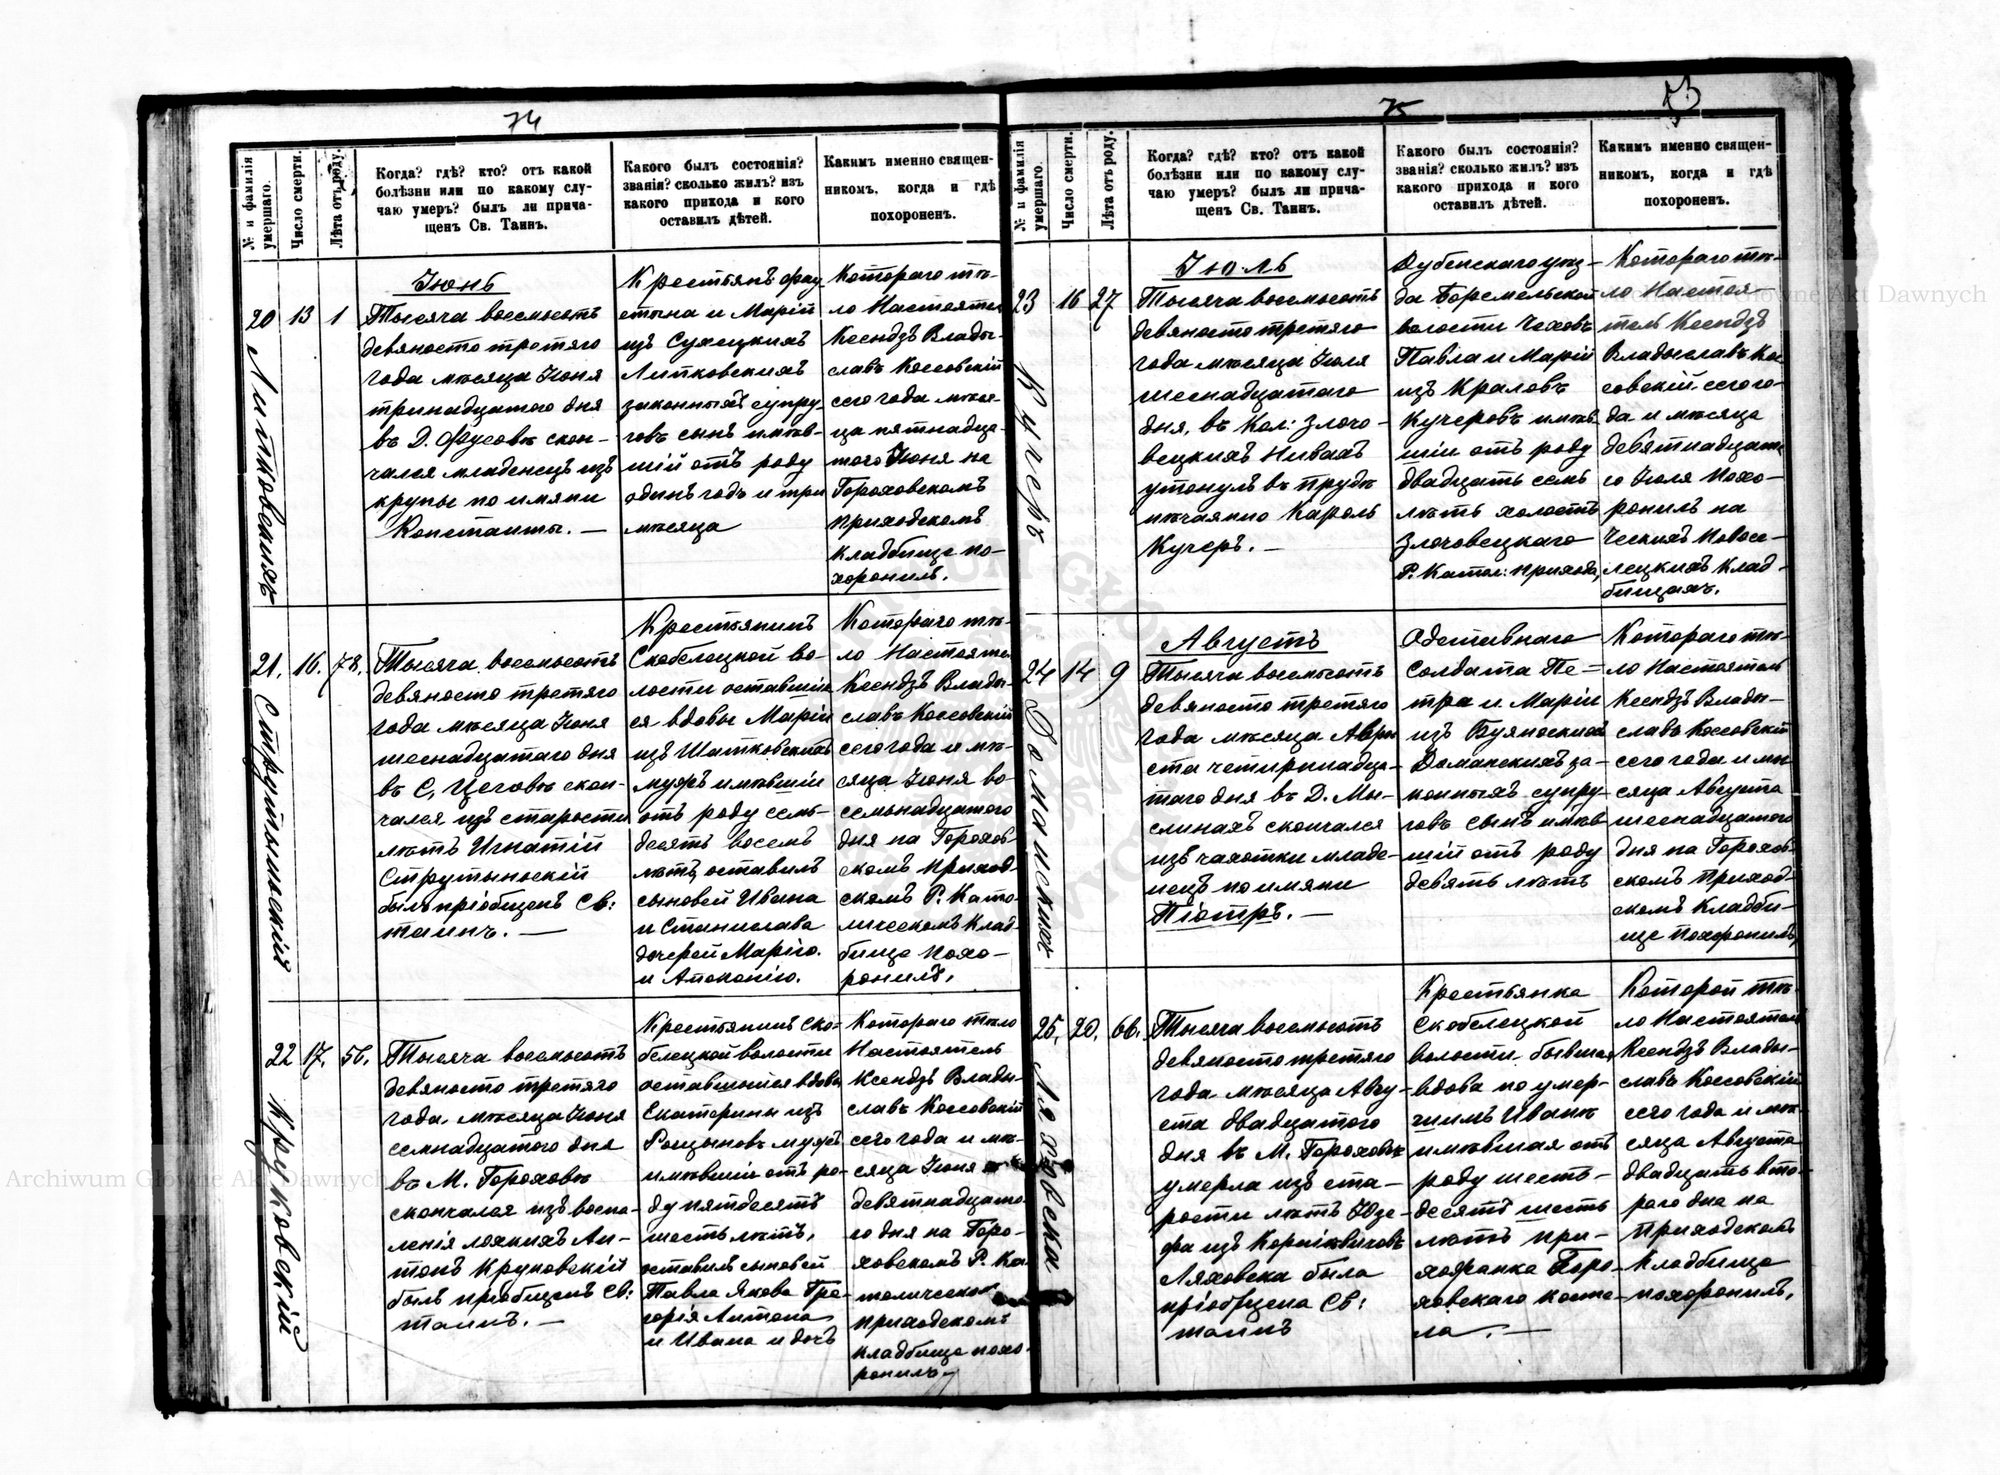 74
№ и фамилія умершаго.
Число смерти.
Лѣта отъ роду.
Когда? гдѣ? кто? отъ какой
болѣзни или по какому слу-
чаю умеръ? былъ ли прича-
щенъ Св. Таинъ.
Какого былъ состоянія?
званія? сколько жилъ? изъ
какого прихода и кого
оставилъ дѣтей.
Каким именно священ-
никомъ, когда и гдѣ
похороненъ.
20
13
1
Литковскихъ
Іюнь
Тысяча восемьсотъ
девяносто третяго
года мѣсяца Іюня
тринадцатого дня
въ Д. Фусовѣ скон-
чался младенецъ изъ
крупы по имяни
Константы. —
Крестьянъ Фау
стына и Марій
изъ Сухецкихъ
Литковскихъ
законныхъ супру-
говъ сынъ имѣв-
шій отъ роду
одинъ годъ и три
мѣсяца
Котораго тѣ-
ло Настоятель
Ксендзъ Влады-
славъ Коссовскій
сего года мѣся-
ца пятнадца-
того Іюня на
Гороховскомъ
приходскомъ
кладбище по-
хоронилъ.
21.
16.
78.
Струтыньскій
Тысяча восемьсотъ
девяносто третяго
года мѣсяца Іюня
шеснадцатаго дня
въ С. Цеговѣ скон-
чался изъ старости
лѣтъ Игнатій
Струтыньскій
былъ пріобщенъ Св:
таинъ. —
Крестьянинъ
Скобелецкой во-
лости оставшій
ся вдовы Марій
изъ Шатковскихъ
мужъ имѣвшій
отъ роду семь-
десятъ восемь
лѣтъ, оставилъ
сыновей Ивана
и Станислава
дочерей Марію.
и Аполонію.
Котораго тѣ-
ло Настоятель
Ксендзъ Влады-
славъ Коссовскій
сего года и мѣ-
сяца Іюня во-
семьнадцатого
дня на Горохов-
скомъ Приход-
скомъ Р: Като-
лическомъ Клад-
бище похо-
ронилъ.
22
17.
56.
Круковскій
Тысяча восемьсотъ
девяносто третяго
года. мѣсяца Іюня
семнадцатого дня
въ М. Гороховѣ
скончался изъ воспа-
ленія лохкихъ Ан-
тонъ Круковскій
былъ пріобщенъ Св:
таинъ. —
Крестьянинъ Ско-
белецкой волости
оставшыйся вдовы
Екатерины изъ
Рощыновъ мужъ
имѣвшій отъ ро-
ду пятдесятъ
шесть лѣтъ,
оставилъ сыновей
Павла Якова Гре-
горія Антона
и Ивана и дочь
Котораго тѣло
Настоятель
Ксендзъ Влады-
славъ Коссовскій
сего года и мѣ-
сяца Іюня
девятнадцата-
го дня на Горо-
ховскомъ Р. Ка
толическом
приходскомъ
кладбище похо-
ронилъ—
75
53
№ и фамилія умершаго.
Число смерти.
Лѣта отъ роду.
Когда? гдѣ? кто? отъ какой
болѣзни или по какому слу-
чаю умеръ? былъ ли прича-
щенъ Св. Таинъ.
Какого былъ состоянія?
званія? сколько жилъ? изъ
какого прихода и кого
оставилъ дѣтей.
Каким именно священ-
никомъ, когда и гдѣ
похороненъ.
23
16
27
Кучеръ
Іюль
Тысяча восемьсотъ
девяносто третяго
года мѣсяца Іюля
шеснадцатаго
дня, въ Кол: Злочо-
вецкихъ Нивахъ
утонулъ въ прудѣ
нѣчаянно Кароль
Кучеръ. —
Дубенскаго уѣз-
да Боремельской
волости Чеховъ
Павла и Марій
изъ Краловъ
Кучеровъ имѣв
шій отъ роду
двадцать семь
лѣтъ холостъ
Злочовецкаго
Р. Катол: прихода,
Котораго тѣ-
ло Настоя-
тель Ксендзъ
Владыславъ Ко
совскій сего го-
да и мѣсяца
девятнадцата
го Іюля похо-
ронилъ на
Ческихъ Новосе-
лецкихъ Клад-
бищахъ.
24
14
9
Доманскихъ
Августъ
Тысяча восемьсотъ
девяносто третяго
года мѣсяца Авгу
ста четырнадца-
таго дня въ Д. Мы-
слинахъ скончался
изъ чахотки младе-
нецъ по имяни
Піотръ. —
Одставнаго
Солдата Пе-
тра и Маріи
изъ Буяновскихъ
Доманскихъ за-
конныхъ супру-
говъ сынъ имѣв
шій отъ роду
девять лѣтъ
Котораго тѣ-
ло Настоятель
Ксендзъ Влады-
славъ Коссовскій
сего года и мѣ
сяца Августа
шеснадцатого
дня на Горохов-
скомъ Приход-
скомъ Кладби-
ще похоронилъ,
25.
20.
66.
Ляховска
Тысяча восемьсотъ
девяносто третяго
года мѣсяца Авгу-
ста двадцатого
дня въ М. Гороховѣ
умерла изъ ста-
рости лѣтъ Юзе-
фа изъ Корніевичовъ
Ляховска была
пріобщена Св:
таинъ
Крестьянка
Скобелецкой
волости бывшая
вдова по умер-
чимъ Иванѣ
имѣвшая отъ
роду шесть-
десятъ шесть
лѣтъ при-
хожанка Горо-
ховскаго косте-
ла. —
Которой тѣ-
ло Настоятель
Ксендзъ Влады-
славъ Коссовскій
сего года и мѣ-
сяца Августа
двадцать вто-
раго дня на
Приходскомъ
Кладбище
похоронилъ,
Archiwum Główne Akt Dawnych
Archiwum Główne Akt Dawnych